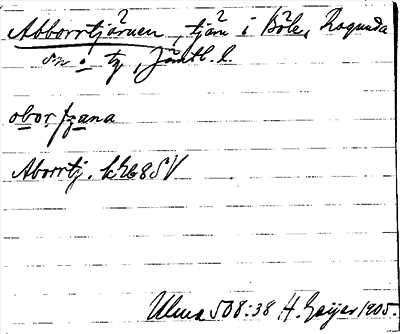 Abborrtjärnen, tjärn i Böle, Ragunda
sn o tg, Jämtl. l.
Aborrtj. k768SV
Ulma 508:38 H. Geijer 1905.